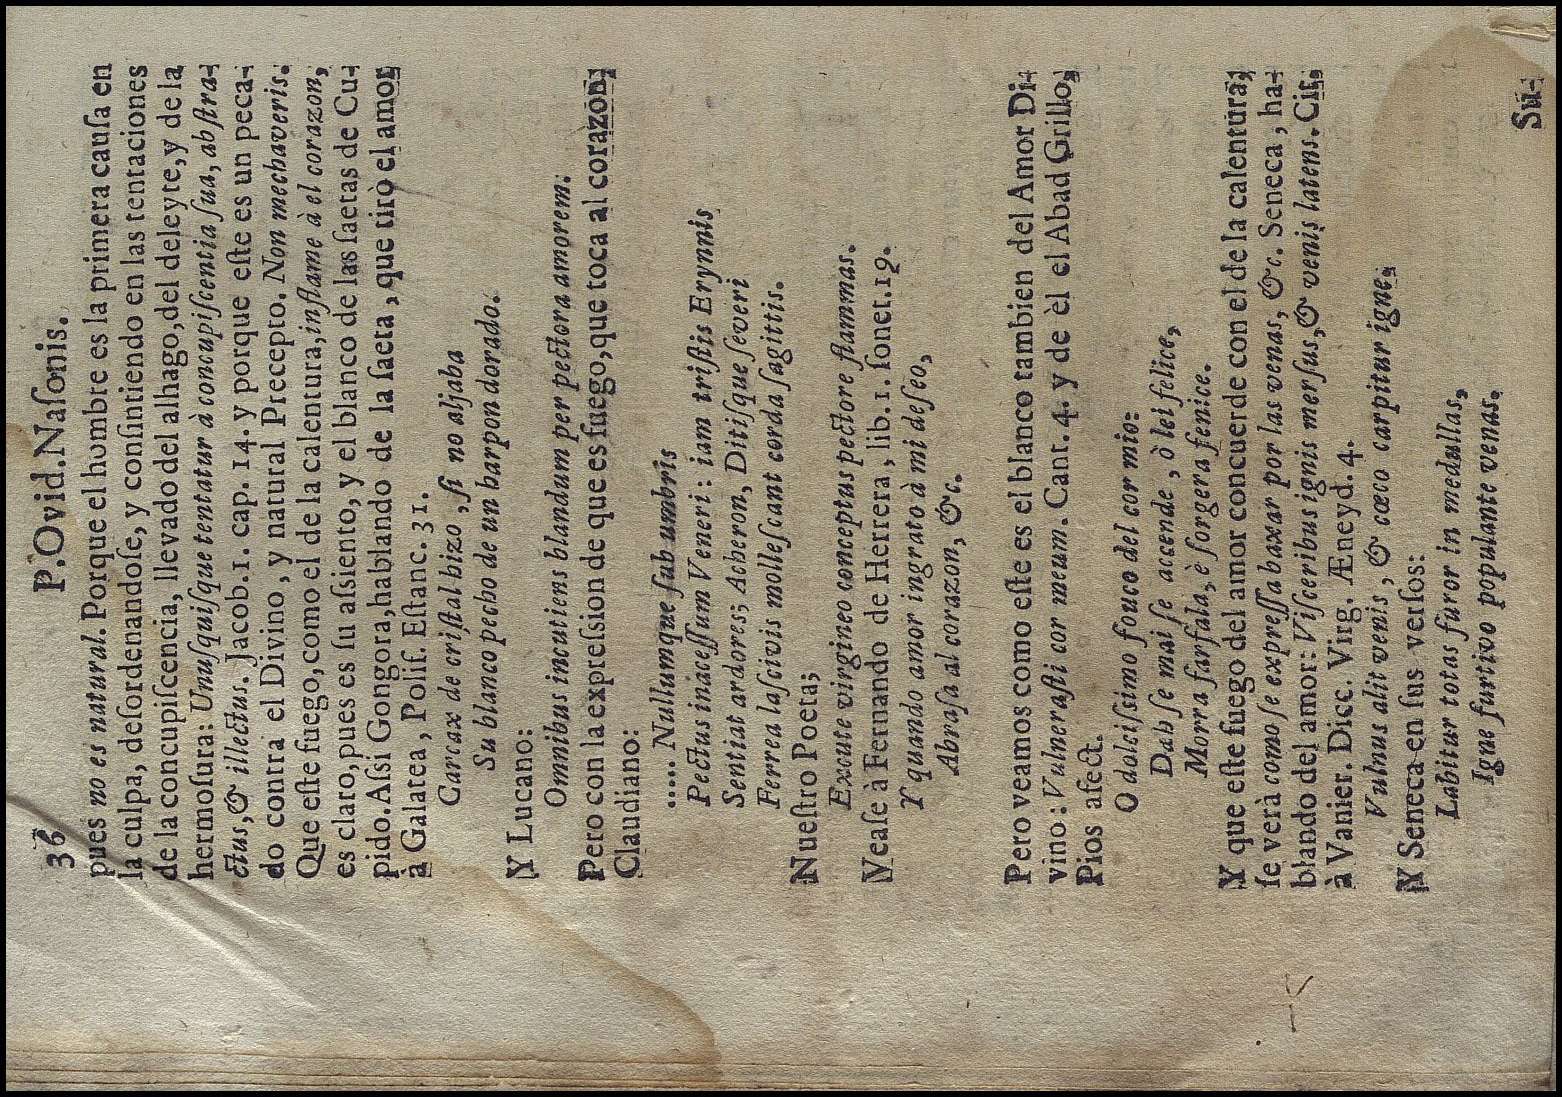 36 P. Ovid. Naſonis.
pues no es natural. Porque el hombre es la primera cauſa en
la culpa, deſordenandoſe, y conſintiendo en las tentaciones
de la concupiſcencia, llevado del alhago, del deleyte, y de la
hermoſura: Unuſquiſque tentatur à concupiſcentia ſua, abſtra-
ctus, & illectus. Jacob. 1. cap. 14. y porque eſte es un peca-
do contra el Divino, y natural Precepto. Non mechaveris.
Que eſte fuego, como el de la calentura, inflame à el corazon,
es claro, pues es ſu aſsiento, y el blanco de las ſaetas de Cu-
pido. Aſsi Gongora, hablando de la ſaeta, que tirò el amor
à Galatea, Poliſ. Eſtanc. 31.
Carcax de criſtal hizo, ſi no aljaba
Su blanco pecho de un harpon dorado.
Y Lucano:
Omnibus incutiens blandum per pectora amorem.
Pero con la expreſsion de que es fuego, que toca al corazon,
Claudiano:
..... Nullumque ſub umbris
Pectus inaceſſum Veneri: iam triſtis Erynnis
Sentiat ardores; Acheron, Ditiſque ſeveri
Ferrea laſcivis molleſcant corda ſagittis.
Nueſtro Poeta;
Excute virgineo conceptus pectore flammas.
Veaſe à Fernando de Herrera, lib. 1. ſonet. 19.
Y quando amor ingrato à mi deſeo,
Abraſa al corazon, &c.
Pero veamos como eſte es el blanco tambien del Amor Di-
vino: Vulneraſti cor meum. Cant. 4. y de èl el Abad Grillo,
Pios afect.
O dolciſsimo fouco del cor mio:
Dab ſe mai ſe accende, ò lei felice,
Morra farfala, è ſorgera fenice.
Y que eſte fuego del amor concuerde con el de la calentura,
ſe verà como ſe expreſſa baxar por las venas, &c. Seneca, ha-
blando del amor: Viſceribus ignis merſus, & venis latens. Cit.
à Vanier. Dicc. Virg. Æneyd. 4.
Vulnus alit venis, & cœco carpitur igne.
Y Seneca en ſus verſos:
Labitur totas furor in medullas,
Igne furtivo populante venas.
Su-